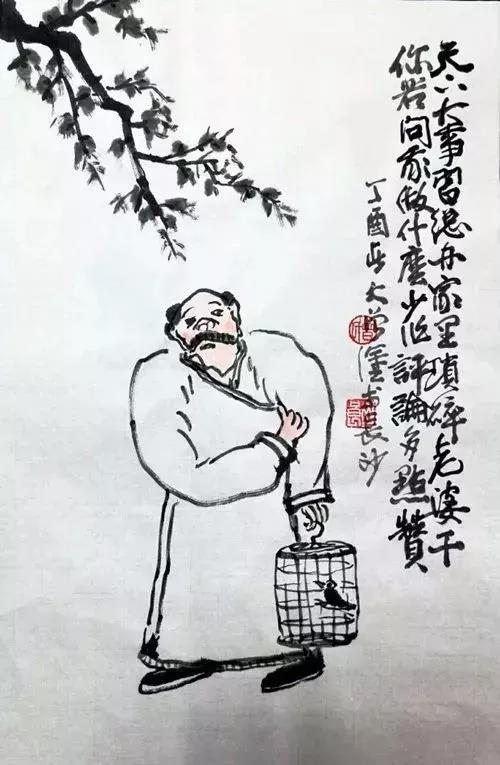 天下大事習總办家里瑣碎老婆干
你若問我做什麼少作評論多點贊
丁酉 大 長沙